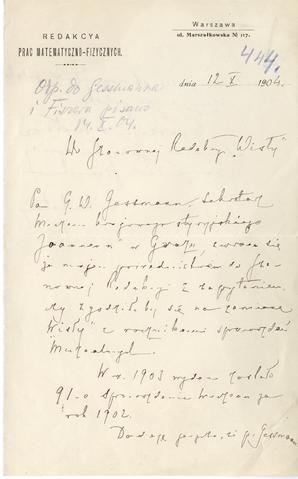 REDAKCYA
PRAC MATEMATYCZNO-FIZYCZNYCH.
Warszawa
ul. Marszałkowska № 117.
444.
dnia 12 X 1904.
Odp. do Gessmanna
i Fiszera pisano
14.X.04.
Do Szanownej Redakcyi „Wisły"
Pan G. W. Gessmann, sekretarz
Muzeum krajowego styryjskiego
Joanneum w Gracu, zwraca się
za mojem pośrednictwem do Sza-
nownej Redakcyi z zapytaniem,
czy zgodziłaby się na zamianę
„Wisły" z rocznikami sprawozdań
W r. 1903 wydane zostało
91-e Sprawozdanie za
rok 1902.
Dodaję że p. Gessmann